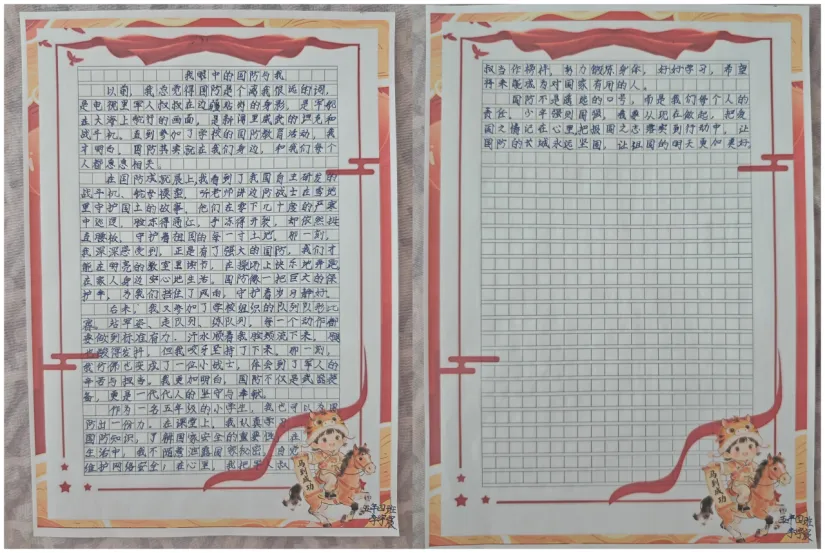 我眼中的国防与我
以前，我总觉得国防是个离我很远的词，
是电视里军人叔叔在边疆站岗的身影，是军舰
在大海上航行的画面，是新闻里威武的坦克和
战斗机。直到参加了学校的国防教育活动，我
才明白，国防其实就在我们身边，和我们每个
人都息息相关。
在国防成就展上，我看到了我国自主研发的
战斗机、舰母模型，听老师讲边防战士在雪地
里守护国土的故事。他们在零下几十度的严寒
中巡逻，脸冻得通红，手冻得开裂，却依然挺
直腰板，守护着祖国的每一寸土地。那一刻，
我深深感受到，正是有了强大的国防，我们才
能在明亮的教室里读书，在操场上快乐地奔跑，
在家人身边安心地生活。国防像一把巨大的保
护伞，为我们挡住了风雨，守护着岁月静好。
后来，我又参加了学校组织的队列队形比
赛。站军姿、走队列、练队列，每一个动作都
要做到标准有力。汗水顺着我脸颊流下来，腿
也酸得发软，但我咬牙坚持了下来。那一刻，
我仿佛也变成了一位小战士，体会到了军人的
辛苦与担当。我更加明白，国防不仅是武器装
备，更是一代代人的坚守与奉献。
作为一名五年级的小学生，我也可以为国
防出一份力。在课堂上，我认真学习
国防知识，了解国家安全的重要性；在
生活中，我不随意泄露国家秘密，自觉
维护网络安全；在心里，我把军人叔
马到成功
五年四班
叔当作榜样，努力锻炼身体，好好学习，希望
将来能成为对国家有用的人。
国防不是遥远的口号，而是我们每个人的
责任。少年强则国强，我要从现在做起，把爱
国之情记在心里把报国之志落实到行动中，让
国防的长城永远坚固，让祖国的明天更加美好
马到成功
五年四班